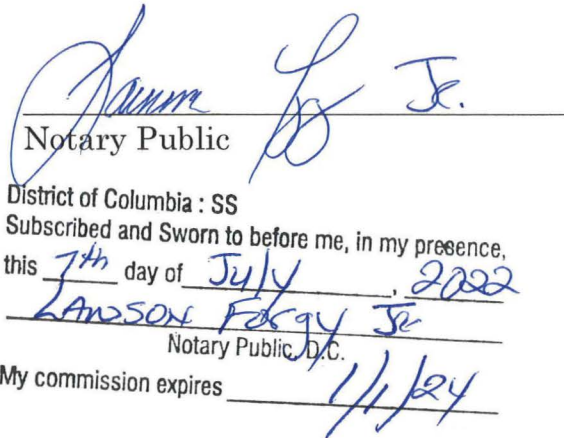 Jr.
Notary Public
District of Columbia : SS
Subscribed and Sworn to before me, in my presence,
this 7th day of July, 2022
LAWSON Forgy Jr
Notary Public, D.C.
My commission expires 1/1/24